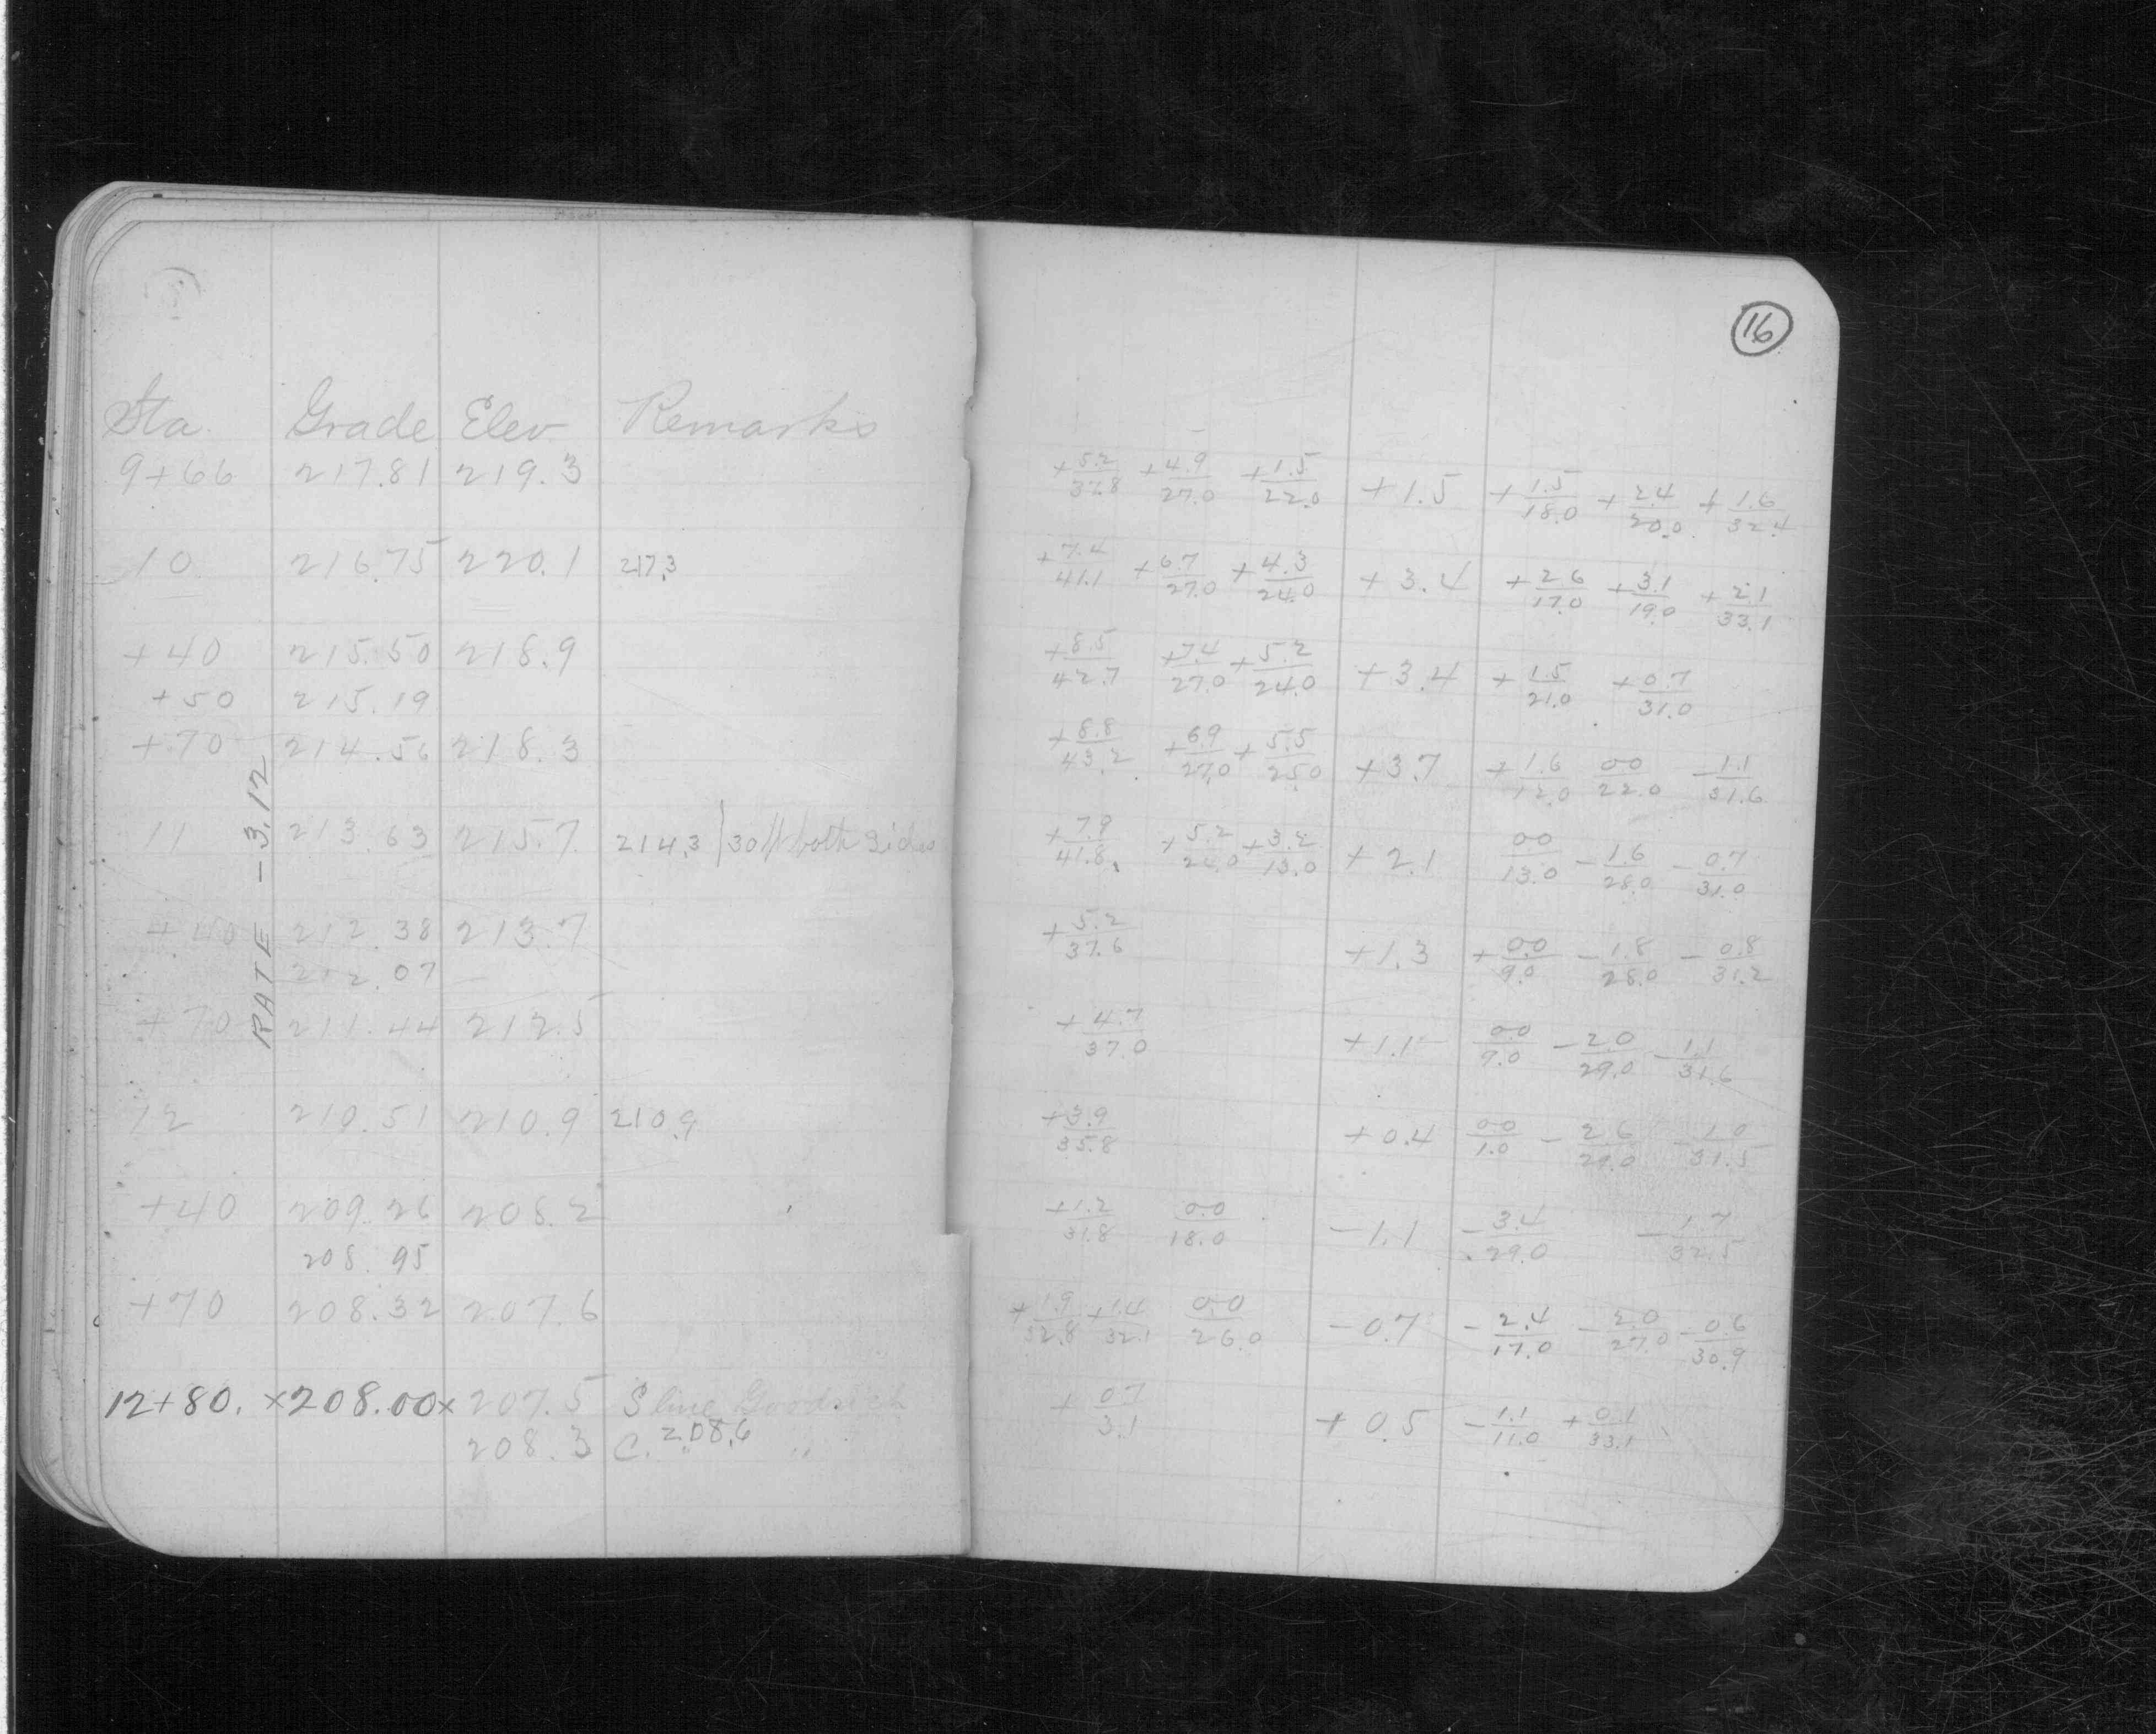 16
Sta. Grade Elev Remarks
9+66 217.81 219.3 +5.2/37.8 +4.9/27.0 +1.5/22.0 +1.5 +1.5/18.0 +2.4/20.0 +1.6/32.4
10 216.75 220.1 217.3 +7.4/41.1 +6.7/27.0 +4.3/24.0 +3.4 +2.6/17.0 +3.1/19.0 +2.1/33.1
+40 215.50 218.9 +8.5/42.7 +7.4/27.0 +5.2/24.0 +3.4 +1.5/21.0 +0.7/31.0
+50 215.19
+70 214.56 218.3 +8.8/43.2 +6.9/27.0 +5.5/25.0 +3.7 +1.6/12.0 00/22.0 -1.1/31.6
11 213.63 215.7 214.3 30 ft both sides +7.9/41.8 +5.2/ +3.2/13.0 +2.1 00/13.0 -1.6/28.0 -0.7/31.0
+40 212.38 213.7 +5.2/37.6 +1.3 +0.0/9.0 -1.8/28.0 -0.8/31.2
212.07
+70 211.44 212.5 +4.7/37.0 +1.1 0.0/9.0 -2.0/29.0 -1.1/31.6
12 210.51 210.9 210.9 +3.9/35.8 +0.4 00/1.0 -2.6/29.0 -1.0/31.5
+40 209.26 208.2 +1.2/31.8 0.0/18.0 -1.1 -3.4/29.0 -1.7/32.5
208.95
+70 208.32 207.6 +1.9/32.8 +1.4/32.1 0.0/26.0 -0.7 -2.4/17.0 -2.0/27.0 -0.6/30.9
12+80. ×208.00× 207.5 S line Goodrich +0.7/3.1 +0.5 -1.1/11.0 +0.1/33.1
208.3 C. 208.6 " "
RATE -3.12